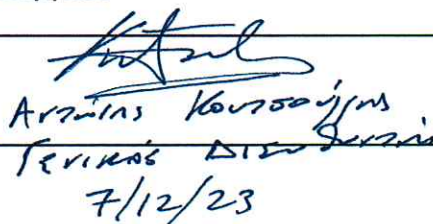 Αντώνης Κουτσούγιας
Γενικός Διευθυντής
7/12/23